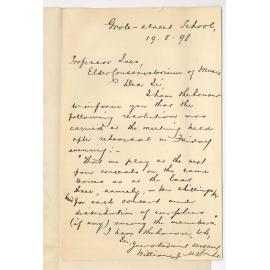 Grote-street School,
19.8.98
Professor Ives,
Elder Conservatorium of Music
Dear Sir
I have the honour
to inform you that the
following resolution was
carried at the meeting held
after rehearsal on Friday
evening:-
"That we play at the next
four concerts on the same
terms as at the last
three, namely, - ten shillings
for each concert and
distribution of surplus
(if any) among the members.
I have the honour, to be,
Sir, Your obedient servant
William J.